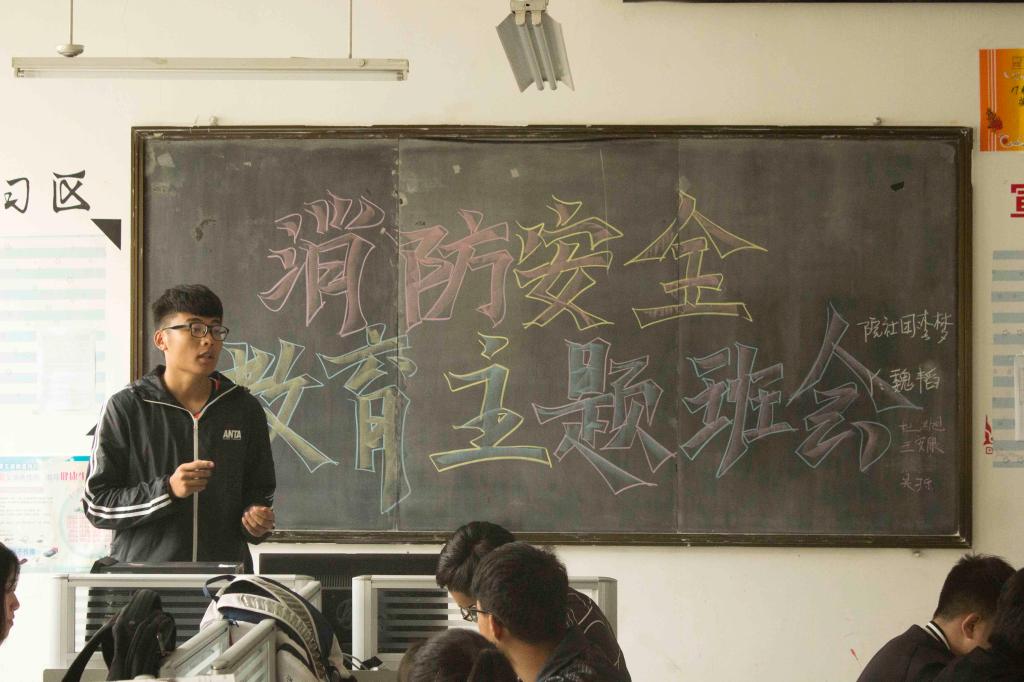 习区
消防安全
教育主题班会
院社团李梦
魏韬
ANTA
健康生
宣